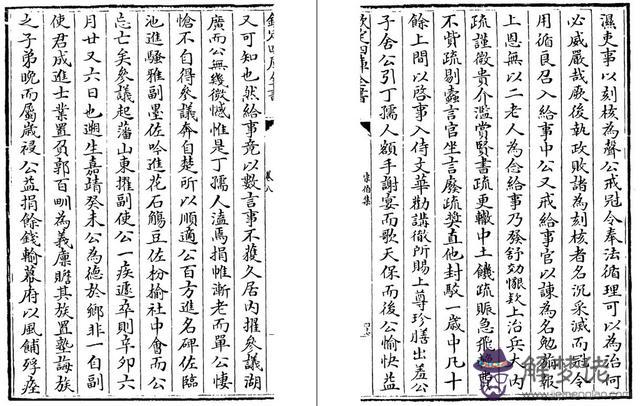 濕吏事以刻核為聲公戒冠令奉法循理可以為治何
必威嚴哉厥後執政敗諸為刻核者名沉采滅而冠令
用循良召入給事中公又戒給事官以諫為名勉諭報
上恩無以二老人為念給事乃發舒効慨欵上治兵大内
疏謹徵貴介濫賞賢書疏更轍中土饑疏賑急
不貲疏剔蠧言官坐言廢疏奬直他封駁一歲中凡十
餘上間以啓事入侍文華勸講徹所賜上尊珍膳出羞公
子舍公引丁孺人額手謝宴而歌天保而後公愉快益
宋伯集
欽定四庫全書
卷八
又可知也然給事竟以數言事不獲久居内擢參議湖
廣而公無幾微憾惟是丁孺人溘焉捐帷漸老而單公悽
愴不自得參議奔自楚所以順適公百方進名碑佐臨
池進騷雅副墨佐吟進花石觴豆佐枌榆社中會而公
忘亡矣參議起藩山東擢副使公一疾遽卒則辛卯六
月廿又六日也遡生嘉靖癸未公為德於鄉非一自副
使君成進士業置負郭百畝為義廩贍其族置塾誨族
之子弟晚而屬歲祲公益捐餘錢輸幕府以風餔殍瘞
解夢佬